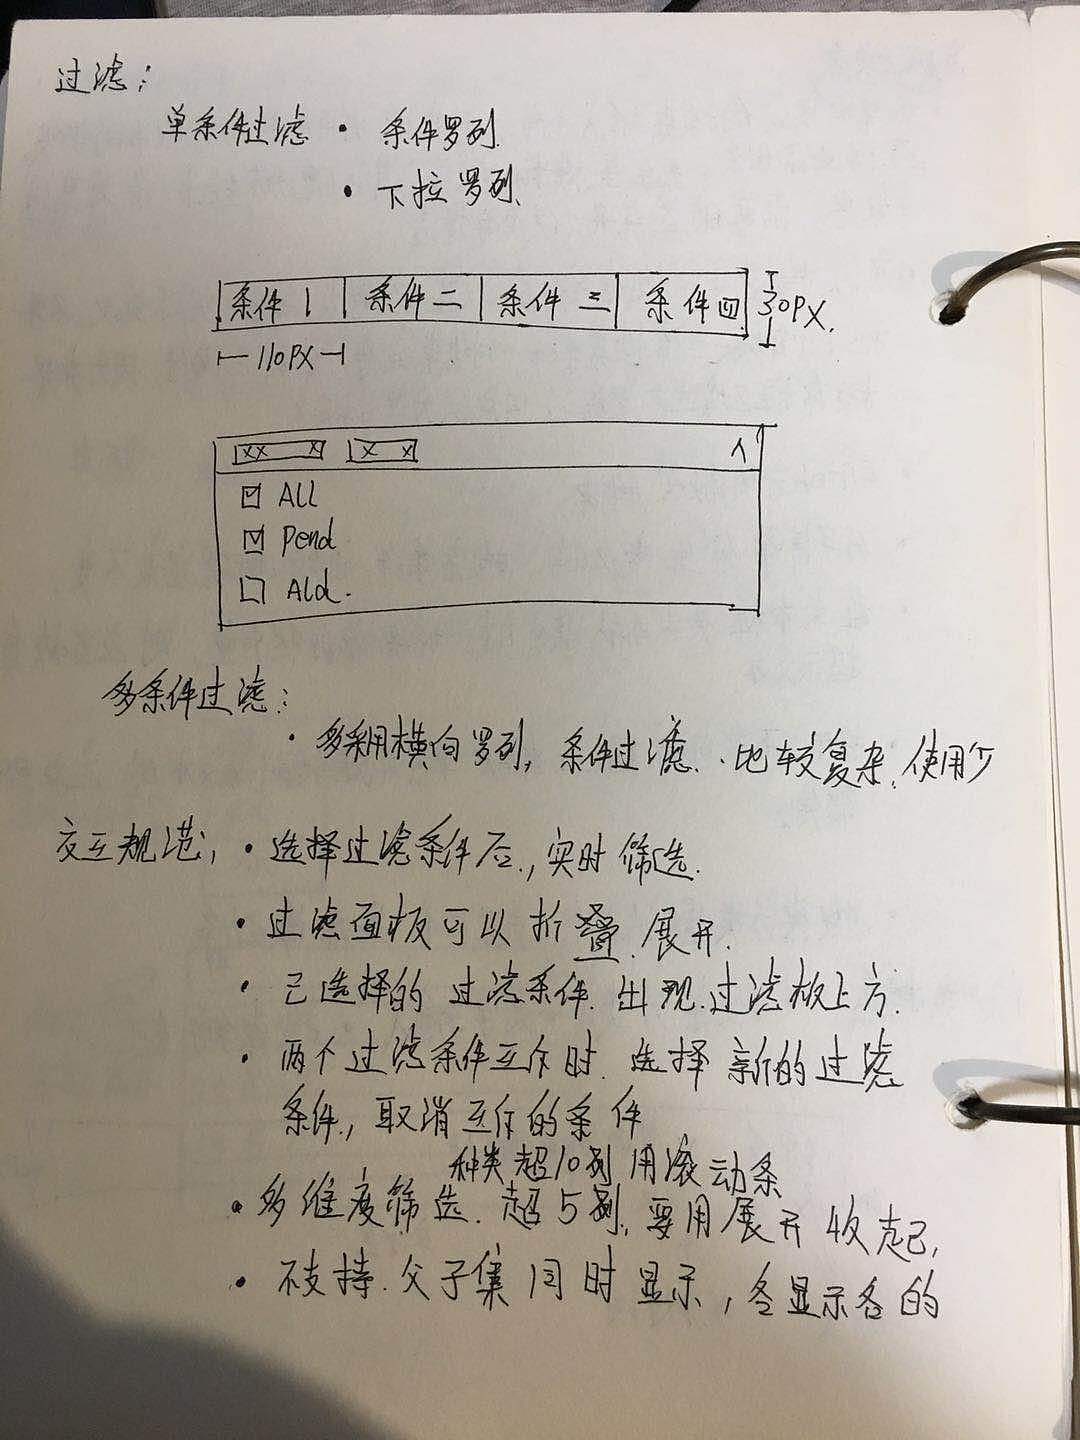 过滤:
单条件过滤 · 条件罗列
· 下拉罗列
条件1 条件二 条件三 条件四 30PX.
110PX
XX X X X
ALL
Pend
Ald.
多条件过滤:
· 多采用横向罗列, 条件过滤. 比较复杂, 使用少
交互规范; · 选择过滤条件后, 实时筛选.
· 过滤面板可以折叠.展开.
· 已选择的过滤条件.出现.过滤板上方.
· 两个过滤条件互斥时.选择新的过滤
条件, 取消互斥的条件
种类超10列用滚动条
· 多维度筛选.超5列,要用展开收起,
· 不支持.父子集同时显示, 各显示各的